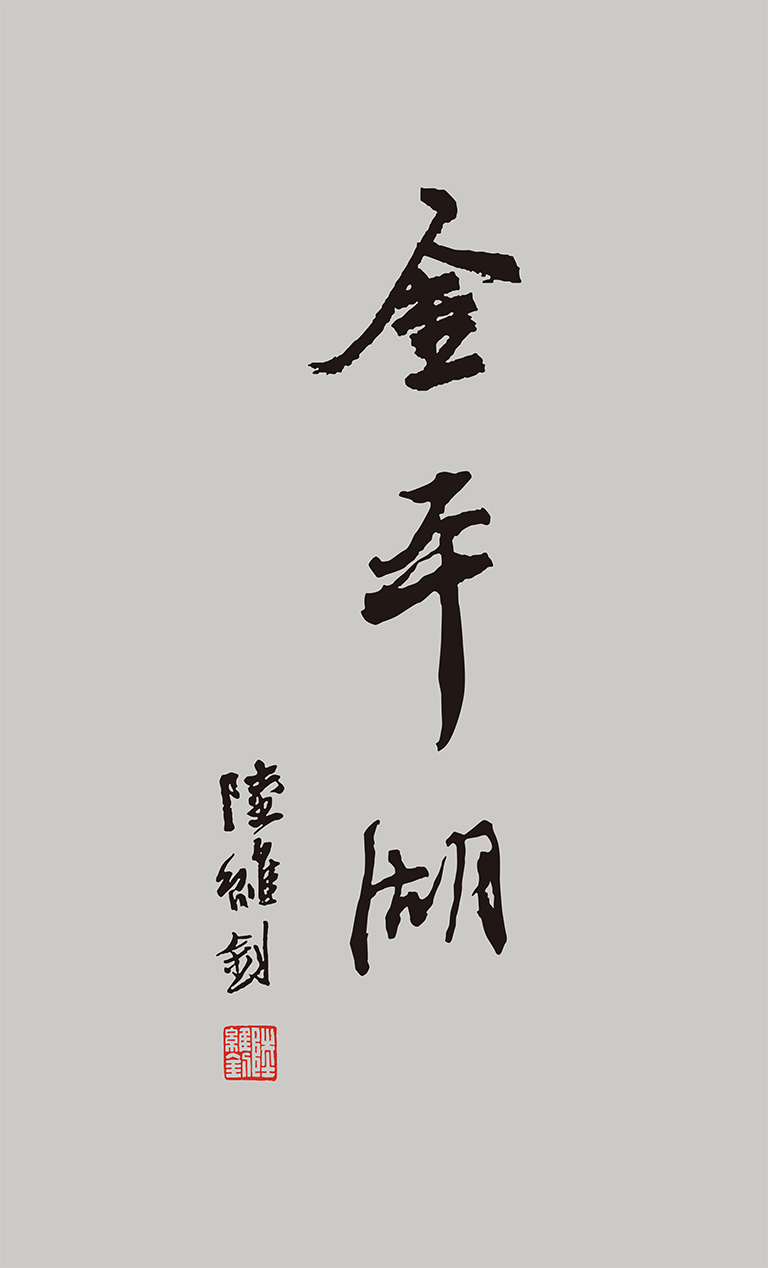 金平湖
陸維釗
陸維釗